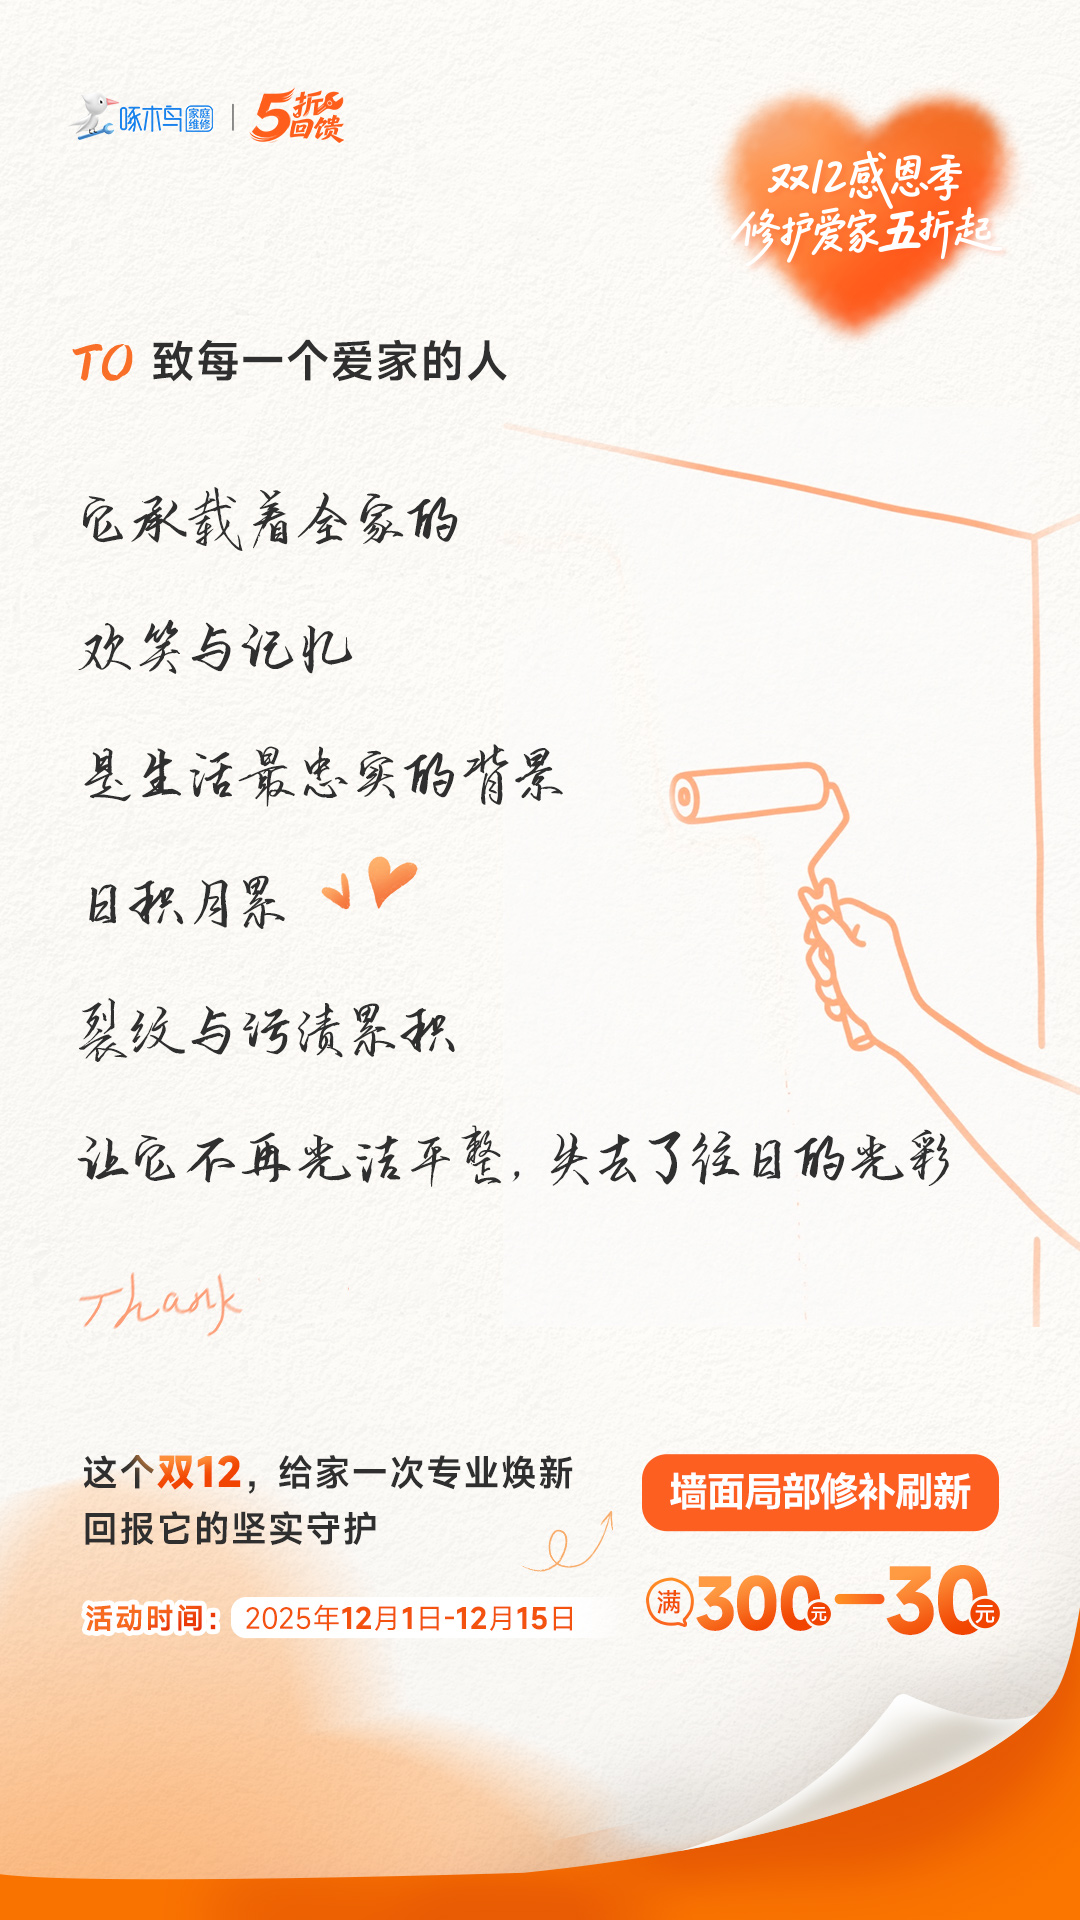 啄木鸟 家庭维修 | 5折回馈
双12感恩季
修护爱家五折起
TO 致每一个爱家的人
它承载着全家的
欢笑与记忆
是生活最忠实的背景
日积月累
裂纹与污渍累积
让它不再光洁平整,失去了往日的光彩
Thank
这个双12,给家一次专业焕新
回报它的坚实守护
墙面局部修补刷新
满300元-30元
活动时间:2025年12月1日-12月15日